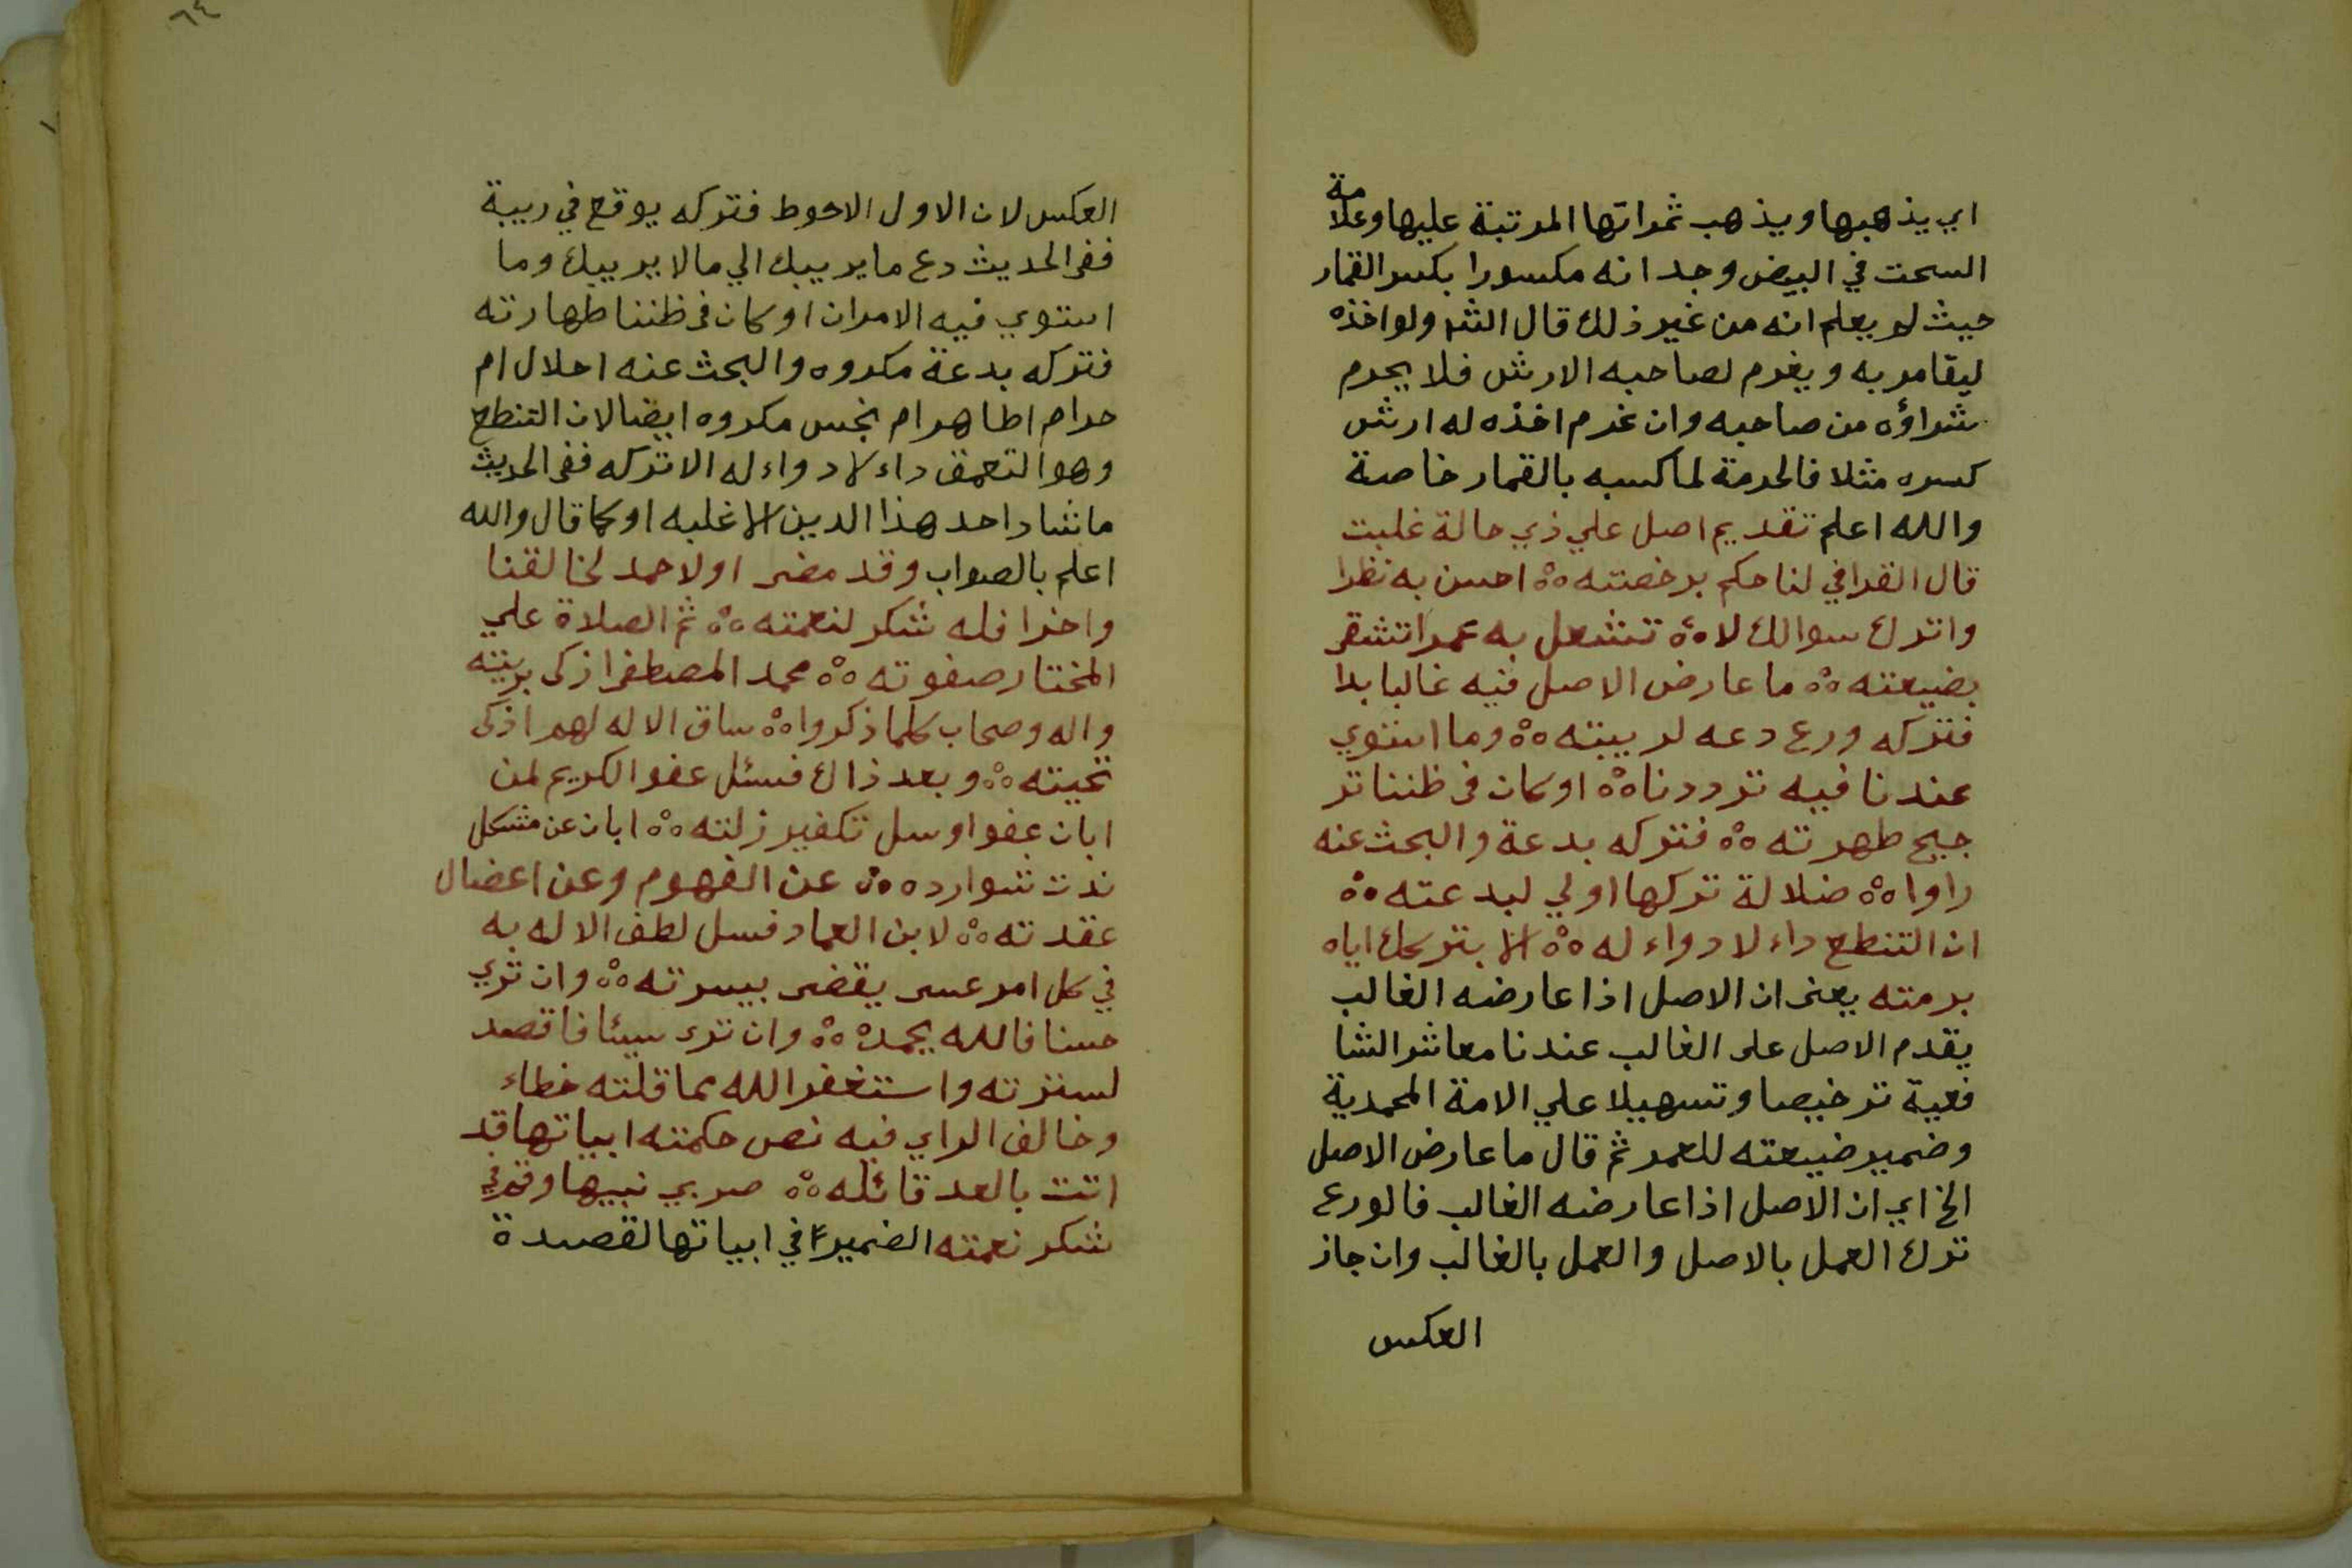 اي يذهبها ويذهب ثمراتها المرتبة عليها وعلامة
السحت في البيض وجد انه مكسورا بكسر القمار
حيث لم يعلم انه من غير ذلك قال الشر ولو اخذه
ليقامر به ويغرم لصاحبه الارش فلا يحرم
شراؤه من صاحبه وان غرم اخذه له ارش
كسره مثلا فالحرمة لما كسبه بالقمار خاصة
والله اعلم تقديم اصل علي ذي حالة غلبت
قال القرافي لنا حكم برخصته ۞ احسن به نظرا
واترك سوالك لا ۞ تشعل به عمرا تشقى
بضيعته ۞ ما عارض الاصل فيه غالبا بدا
فتركه ورع دعه لريبته ۞ وما استوي
عندنا فيه ترددنا ۞ او كان في ظننا تر
جيح طهرته ۞ فتركه بدعة والبحث عنه
راوا ۞ ضلالة تركها اولي لبدعته ۞
ان التنطع داء لا دواء له ۞ الا بتركك اياه
برمته يعني ان الاصل اذا عارضه الغالب
يقدم الاصل على الغالب عندنا معاشر الشا
فعية ترخيصا وتسهيلا علي الامة المحمدية
وضمير ضيعته للعمر ثم قال ما عارض الاصل
الخ اي ان الاصل اذا عارضه الغالب فالورع
ترك العمل بالاصل والعمل بالغالب وان جاز
العكس
٦٤
العكس لان الاول الاحوط فتركه يوقع في ريبة
ففي الحديث دع ما يريبك الي مالا يريبك وما
استوي فيه الامران او كان في ظننا طهارته
فتركه بدعة مكروه والبحث عنه احلال ام
حرام اطاهر ام نجس مكروه ايضا لان التنطع
وهو التعمق داء لا دواء له الا تركه ففي الحديث
ما شاد احد هذا الدين الا غلبه او كما قال والله
اعلم بالصواب وقد مضى اولا حمد لخالقنا
واخرا فله شكر لنعمته ۞ ثم الصلاة علي
المختار صفوته ۞ محمد المصطفى ازكى بريته
واله وصحاب كلما ذكروا ۞ ساق الاله لهم ازكى
تحيته ۞ وبعد ذاك فسئل عفو الكريم لمن
ابان عفوا وسل تكفير زلته ۞ ابان عن مشكل
ندت شوارده ۞ عن الفهوم وعن اعضال
عقدته ۞ لابن العماد فسل لطف الاله به
في كل امر عسى يقضى بيسرته ۞ وان تري
حسنا فالله يحمده ۞ وان ترى سيئا فاقصد
لسترته واستغفر الله مما قلته خطاء
وخالف الراي فيه نص حكمته ابياتها قد
اتت بالعد قائله ۞ صربي نبيها وقرفي
شكر نعمته الضمير في ابياتها لقصدة